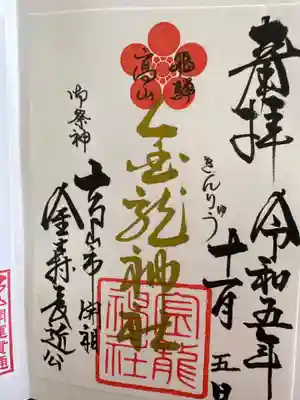 奉拝
令和五年
十一月五日
きんりゅう
飛騨
高山
金龍神社
金龍神社
御祭神
高山市開祖
金森長近公